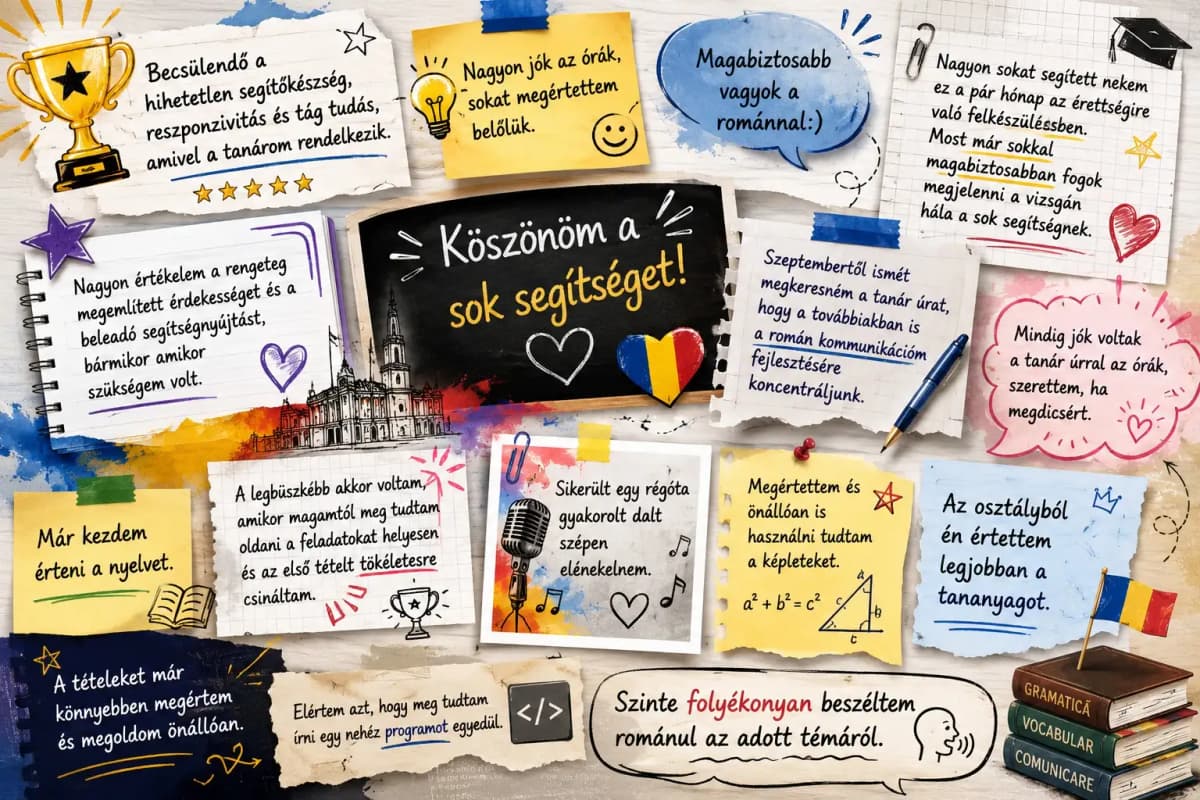 Becsülendő a
hihetetlen segítőkészség,
reszponzivitás és tág tudás,
amivel a tanárom rendelkezik.
Nagyon jók az órák,
sokat megértettem
belőlük.
Magabiztosabb
vagyok a
románnal:)
Nagyon sokat segített nekem
ez a pár hónap az érettségire
való felkészülésben.
Most már sokkal
magabiztosabban fogok
megjelenni a vizsgán
hála a sok segítségnek.
Nagyon értékelem a rengeteg
megemlített érdekességet és a
beleadó segítségnyújtást,
bármikor amikor
szükségem volt.
Köszönöm a
sok segítséget!
Szeptembertől ismét
megkeresném a tanár úrat,
hogy a továbbiakban is
a román kommunikációm
fejlesztésére
koncentráljunk.
Mindig jók voltak
a tanár úrral az órák,
szerettem, ha
megdicsért.
Már kezdem
érteni a nyelvet.
A legbüszkébb akkor voltam,
amikor magamtól meg tudtam
oldani a feladatokat helyesen
és az első tételt tökéletesre
csináltam.
Sikerült egy régóta
gyakorolt dalt
szépen
elénekelnem.
Megértettem és
önállóan is
használni tudtam
a képleteket.
a² + b² = c²
a
c
b
c
Az osztályból
én értettem
legjobban a
tananyagot.
A tételeket már
könnyebben megértem
és megoldom önállóan.
Elértem azt, hogy meg tudtam
írni egy nehéz programot egyedül.
</>
Szinte folyékonyan beszéltem
románul az adott témáról.
GRAMATICĂ
VOCABULAR
COMUNICARE